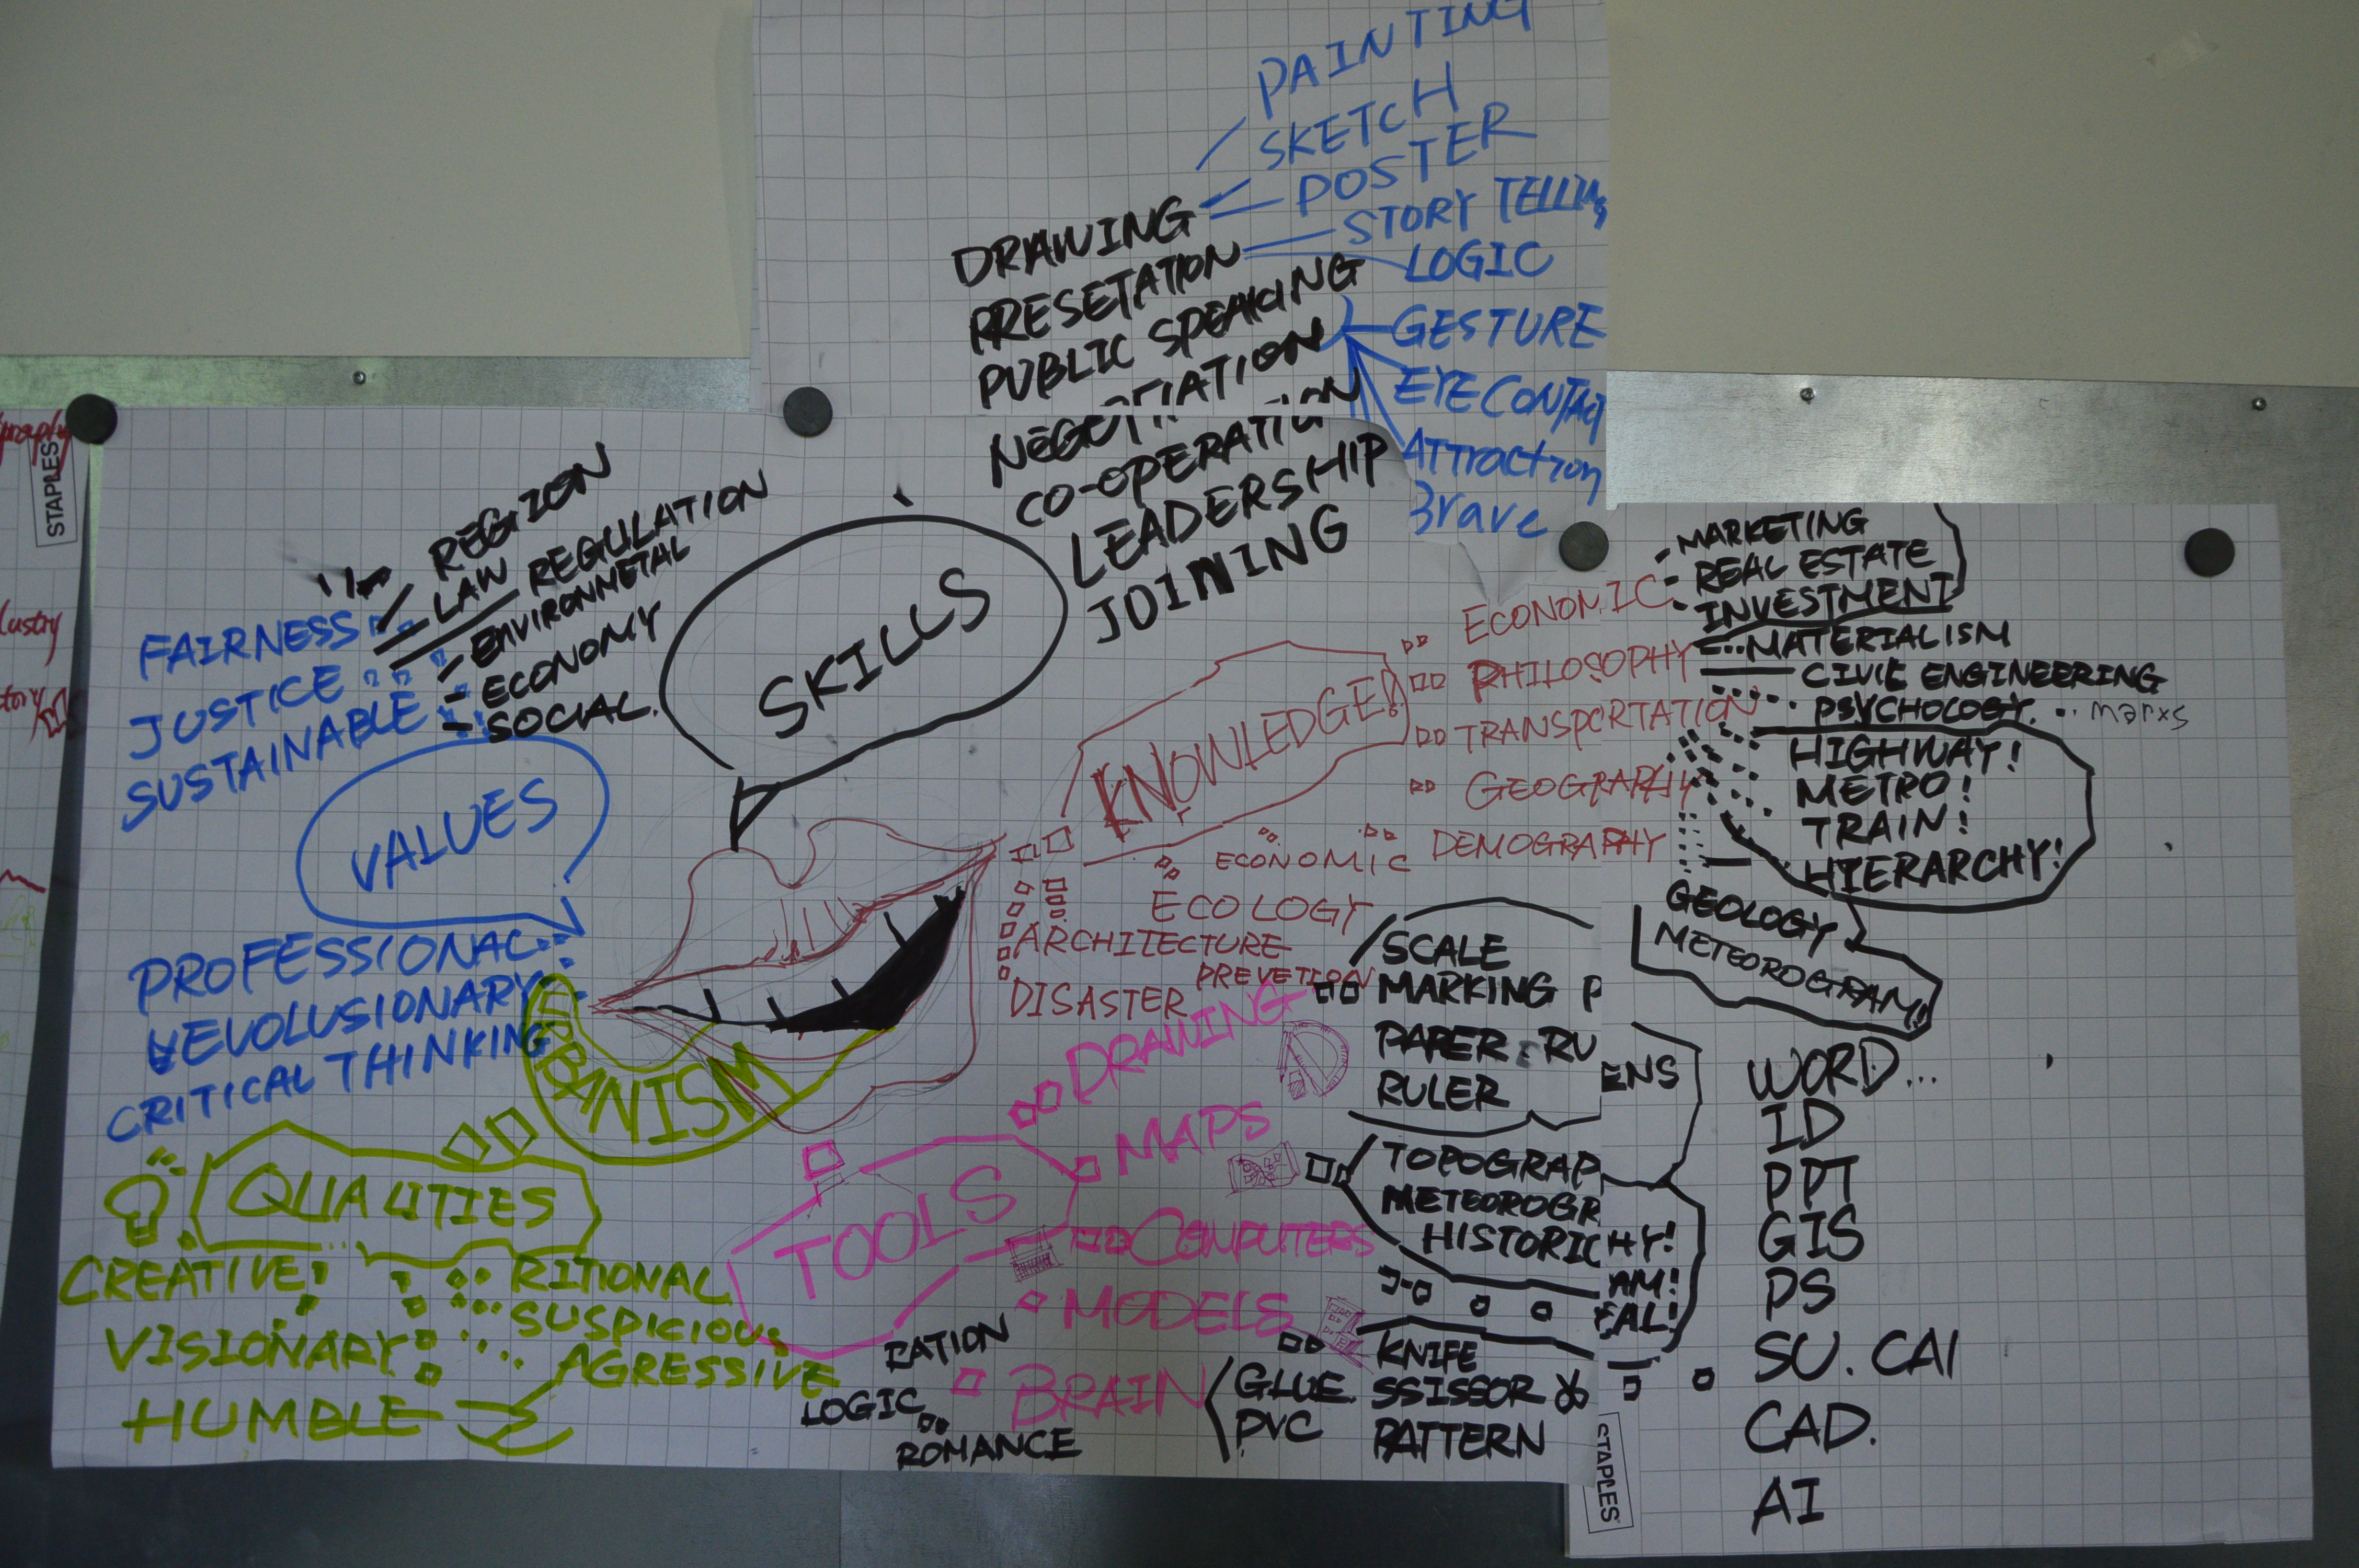 PAINTING
SKETCH
POSTER
STORY TELLING
LOGIC
GESTURE
EYE CONTACT
ATTRACTION
Brave
DRAWING
PRESETATION
PUBLIC SPEAKING
NEGOTIATION
CO-OPERATION
LEADERSHIP
JOINING
SKILLS
REGION
LAW REGULATION
ENVIRONMETAL
ECONOMY
SOCIAL.
FAIRNESS
JUSTICE
SUSTAINABLE
VALUES
PROFESSIONAL
REVOLUSIONARY
CRITICAL THINKING
URBANISM
QUALITIES
CREATIVE
VISIONARY
HUMBLE
RITIONAL
SUSPICIOUS
AGRESSIVE
KNOWLEDGE!
ECONOMIC
PHILOSOPHY
TRANSPORTATION
GEOGRAPHY
DEMOGRAPHY
ECONOMIC
ECOLOGY
ARCHITECTURE
DISASTER PREVETION
MARKETING
REAL ESTATE
INVESTMENT
MATERIALISM
CIVIL ENGINEERING
PSYCHOLOGY. marxs
HIGHWAY!
METRO!
TRAIN!
HIERARCHY!
GEOLOGY
METEOROGRAM!
TOOLS
DRAWING
MAPS
COMPUTERS
MODELS
BRAIN
RATION
LOGIC
ROMANCE
SCALE
MARKING P
ENS
PAPER RU
RULER
TOPOGRAP
HY!
METEOROGR
AM!
HISTORIC
AL!
KNIFE
GLUE. SSISSOR
PVC PATTERN
WORD...
ID
PPT
GIS
PS
SU. CAI
CAD.
AI
STAPLES
STAPLES